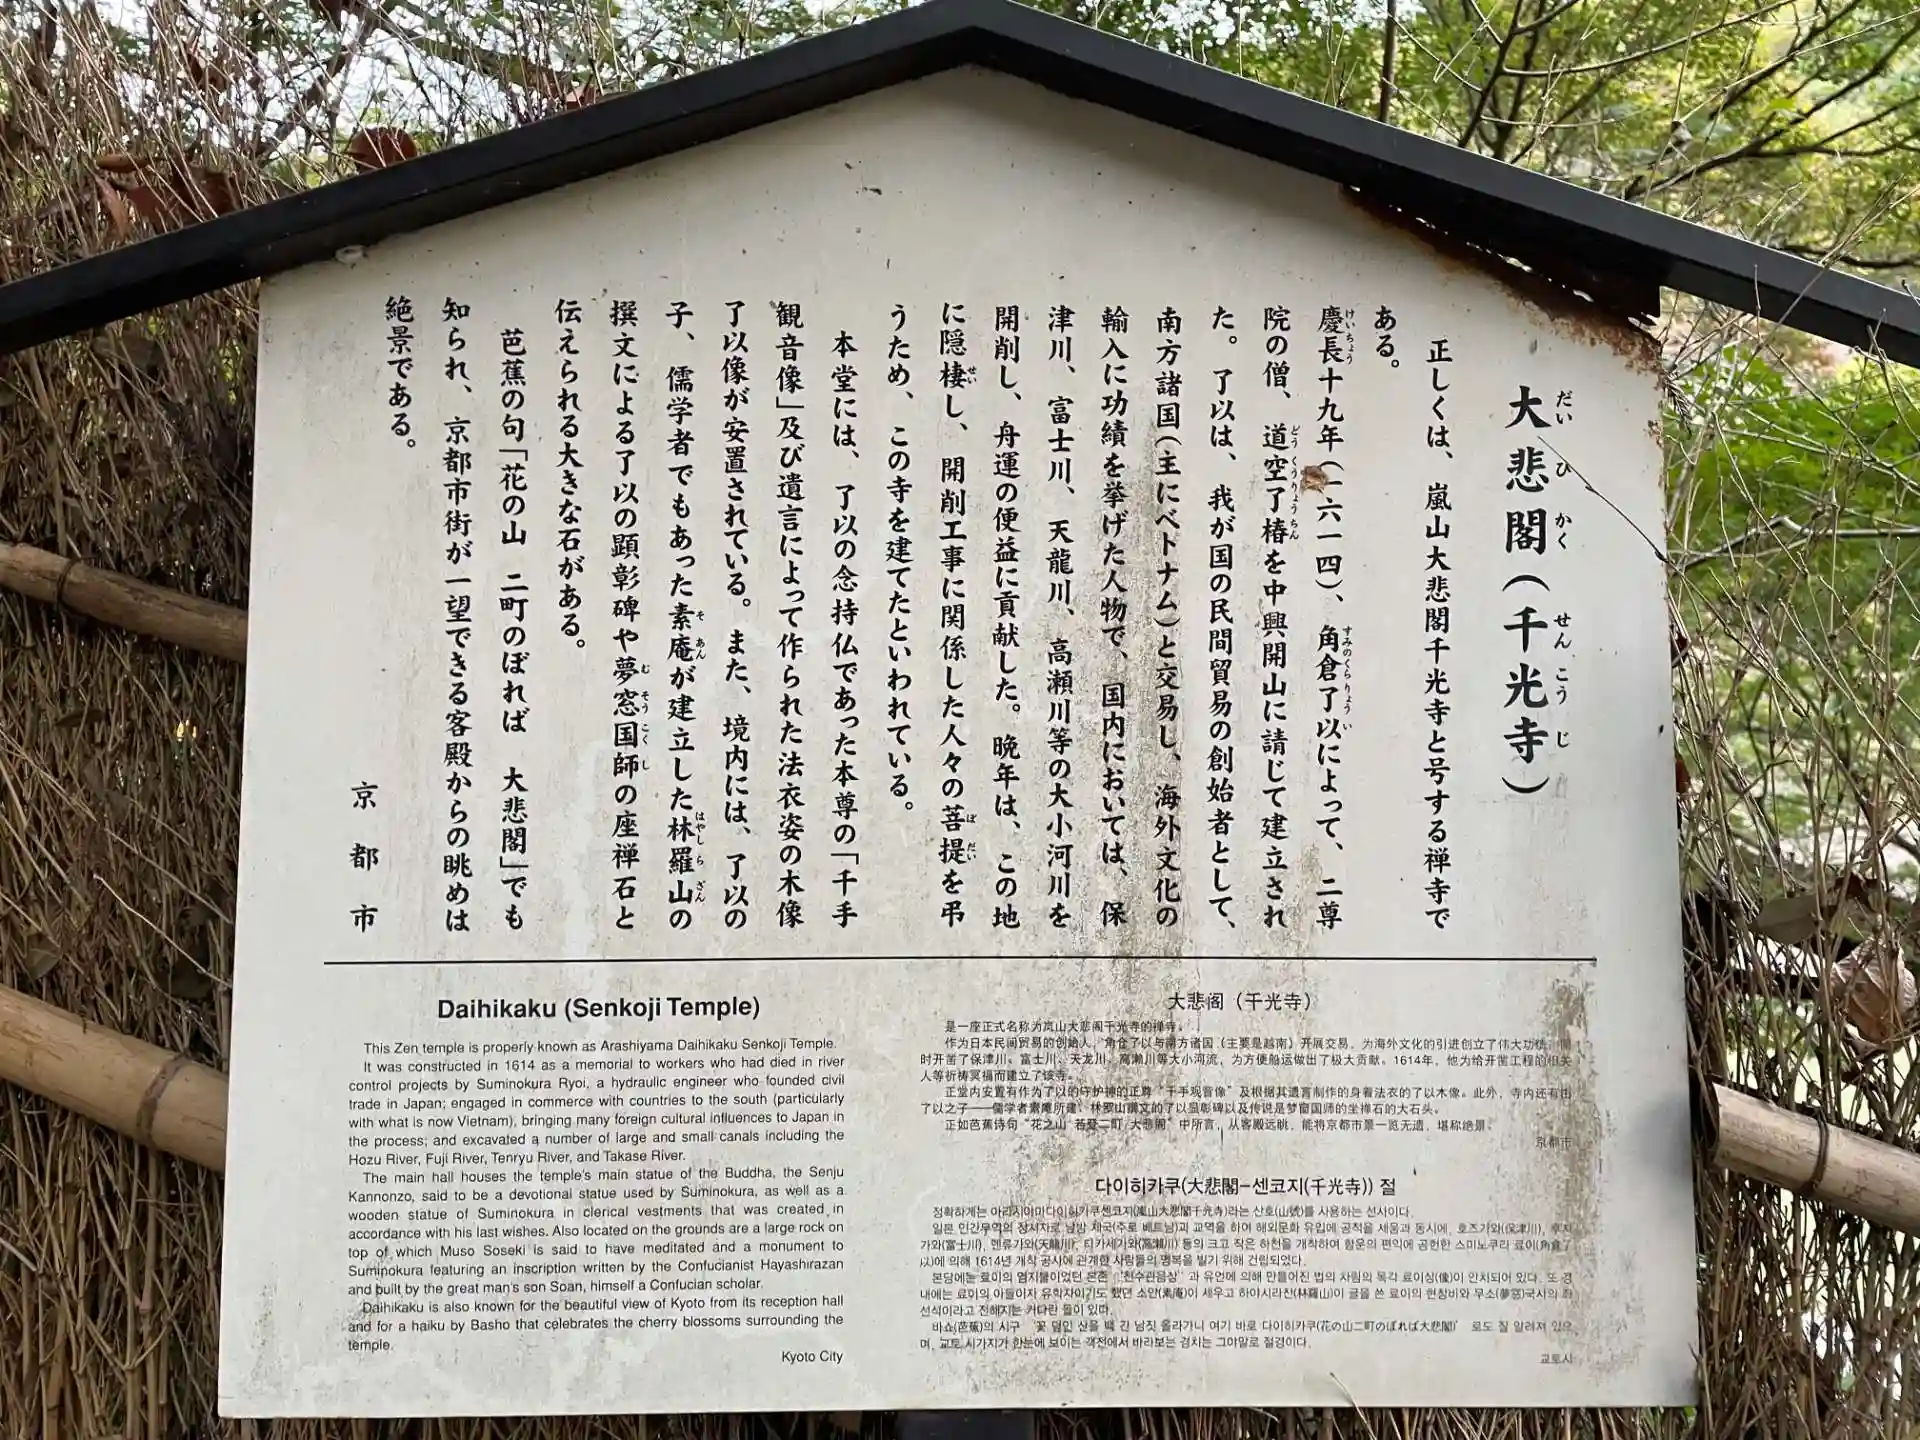 大悲閣(千光寺)
だいひかく せんこうじ
正しくは、嵐山大悲閣千光寺と号する禅寺で
ある。
慶長十九年(一六一四)、角倉了以によって、二尊
けいちょう すみのくらりょうい
院の僧、道空了椿を中興開山に請じて建立され
どうくうりょうちん
た。了以は、我が国の民間貿易の創始者として、
南方諸国(主にベトナム)と交易し、海外文化の
輸入に功績を挙げた人物で、国内においては、保
津川、富士川、天龍川、高瀬川等の大小河川を
開削し、舟運の便益に貢献した。晩年は、この地
に隠棲し、開削工事に関係した人々の菩提を弔
せい ぼだい
うため、この寺を建てたといわれている。
本堂には、了以の念持仏であった本尊の「千手
観音像」及び遺言によって作られた法衣姿の木像
了以像が安置されている。また、境内には、了以の
子、儒学者でもあった素庵が建立した林羅山の
そあん はやしらざん
撰文による了以の顕彰碑や夢窓国師の座禅石と
むそうこくし
伝えられる大きな石がある。
芭蕉の句「花の山 二町のぼれば 大悲閣」でも
知られ、京都市街が一望できる客殿からの眺めは
絶景である。
京都市
Daihikaku (Senkoji Temple)
This Zen temple is properly known as Arashiyama Daihikaku Senkoji Temple.
It was constructed in 1614 as a memorial to workers who had died in river
control projects by Suminokura Ryoi, a hydraulic engineer who founded civil
trade in Japan; engaged in commerce with countries to the south (particularly
with what is now Vietnam), bringing many foreign cultural influences to Japan in
the process; and excavated a number of large and small canals including the
Hozu River, Fuji River, Tenryu River, and Takase River.
The main hall houses the temple's main statue of the Buddha, the Senju
Kannonzo, said to be a devotional statue used by Suminokura, as well as a
wooden statue of Suminokura in clerical vestments that was created in
accordance with his last wishes. Also located on the grounds are a large rock on
top of which Muso Soseki is said to have meditated and a monument to
Suminokura featuring an inscription written by the Confucianist Hayashirazan
and built by the great man's son Soan, himself a Confucian scholar.
Daihikaku is also known for the beautiful view of Kyoto from its reception hall
and for a haiku by Basho that celebrates the cherry blossoms surrounding the
temple.
Kyoto City
大悲阁(千光寺)
是一座正式名称为岚山大悲阁千光寺的禅寺。
作为日本民间贸易的创始人,角仓了以与南方诸国(主要是越南)开展交易,为海外文化的引进创立了伟大功绩,同
时开凿了保津川、富士川、天龙川、高濑川等大小河流,为方便船运做出了极大贡献。1614年,他为给开凿工程的相关
人等祈祷冥福而建立了该寺。
正堂内安置有作为了以的守护神的正尊“千手观音像”及根据其遗言制作的身着法衣的了以木像。此外,寺内还有由
了以之子——儒学者素庵所建、林罗山撰文的了以显彰碑以及传说是梦窗国师的坐禅石的大石头。
正如芭蕉诗句“花之山 若登二町 大悲阁”中所言,从客殿远眺,能将京都市景一览无遗,堪称绝景。
京都市
다이히카쿠(大悲閣-센코지(千光寺)) 절
정확하게는 아라시야마다이히카쿠센코지(嵐山大悲閣千光寺)라는 산호(山號)를 사용하는 선사이다.
일본 민간무역의 창시자로 남방 제국(주로 베트남)과 교역을 하여 해외문화 유입에 공적을 세움과 동시에, 호즈가와(保津川), 후지
가와(富士川), 덴류가와(天龍川), 다카세가와(高瀬川) 등의 크고 작은 하천을 개착하여 함운의 편익에 공헌한 스미노쿠라 료이(角倉了
以)에 의해 1614년 개착 공사에 관계한 사람들의 명복을 빌기 위해 건립되었다.
본당에는 료이의 염지불이었던 본존 '천수관음상' 과 유언에 의해 만들어진 법의 차림의 목각 료이상(像)이 안치되어 있다. 또 경
내에는 료이의 아들이자 유학자이기도 했던 소안(素庵)이 세우고 하야시라잔(林羅山)이 글을 쓴 료이의 현창비와 무소(夢窓)국사의 좌
선석이라고 전해지는 커다란 돌이 있다.
바쇼(芭蕉)의 시구 '꽃 덮인 산을 백 긴 남짓 올라가니 여기 바로 다이히카쿠(花の山二町のぼれば大悲閣)' 로도 잘 알려져 있으
며, 교토 시가지가 한눈에 보이는 객전에서 바라보는 경치는 그야말로 절경이다.
교토시